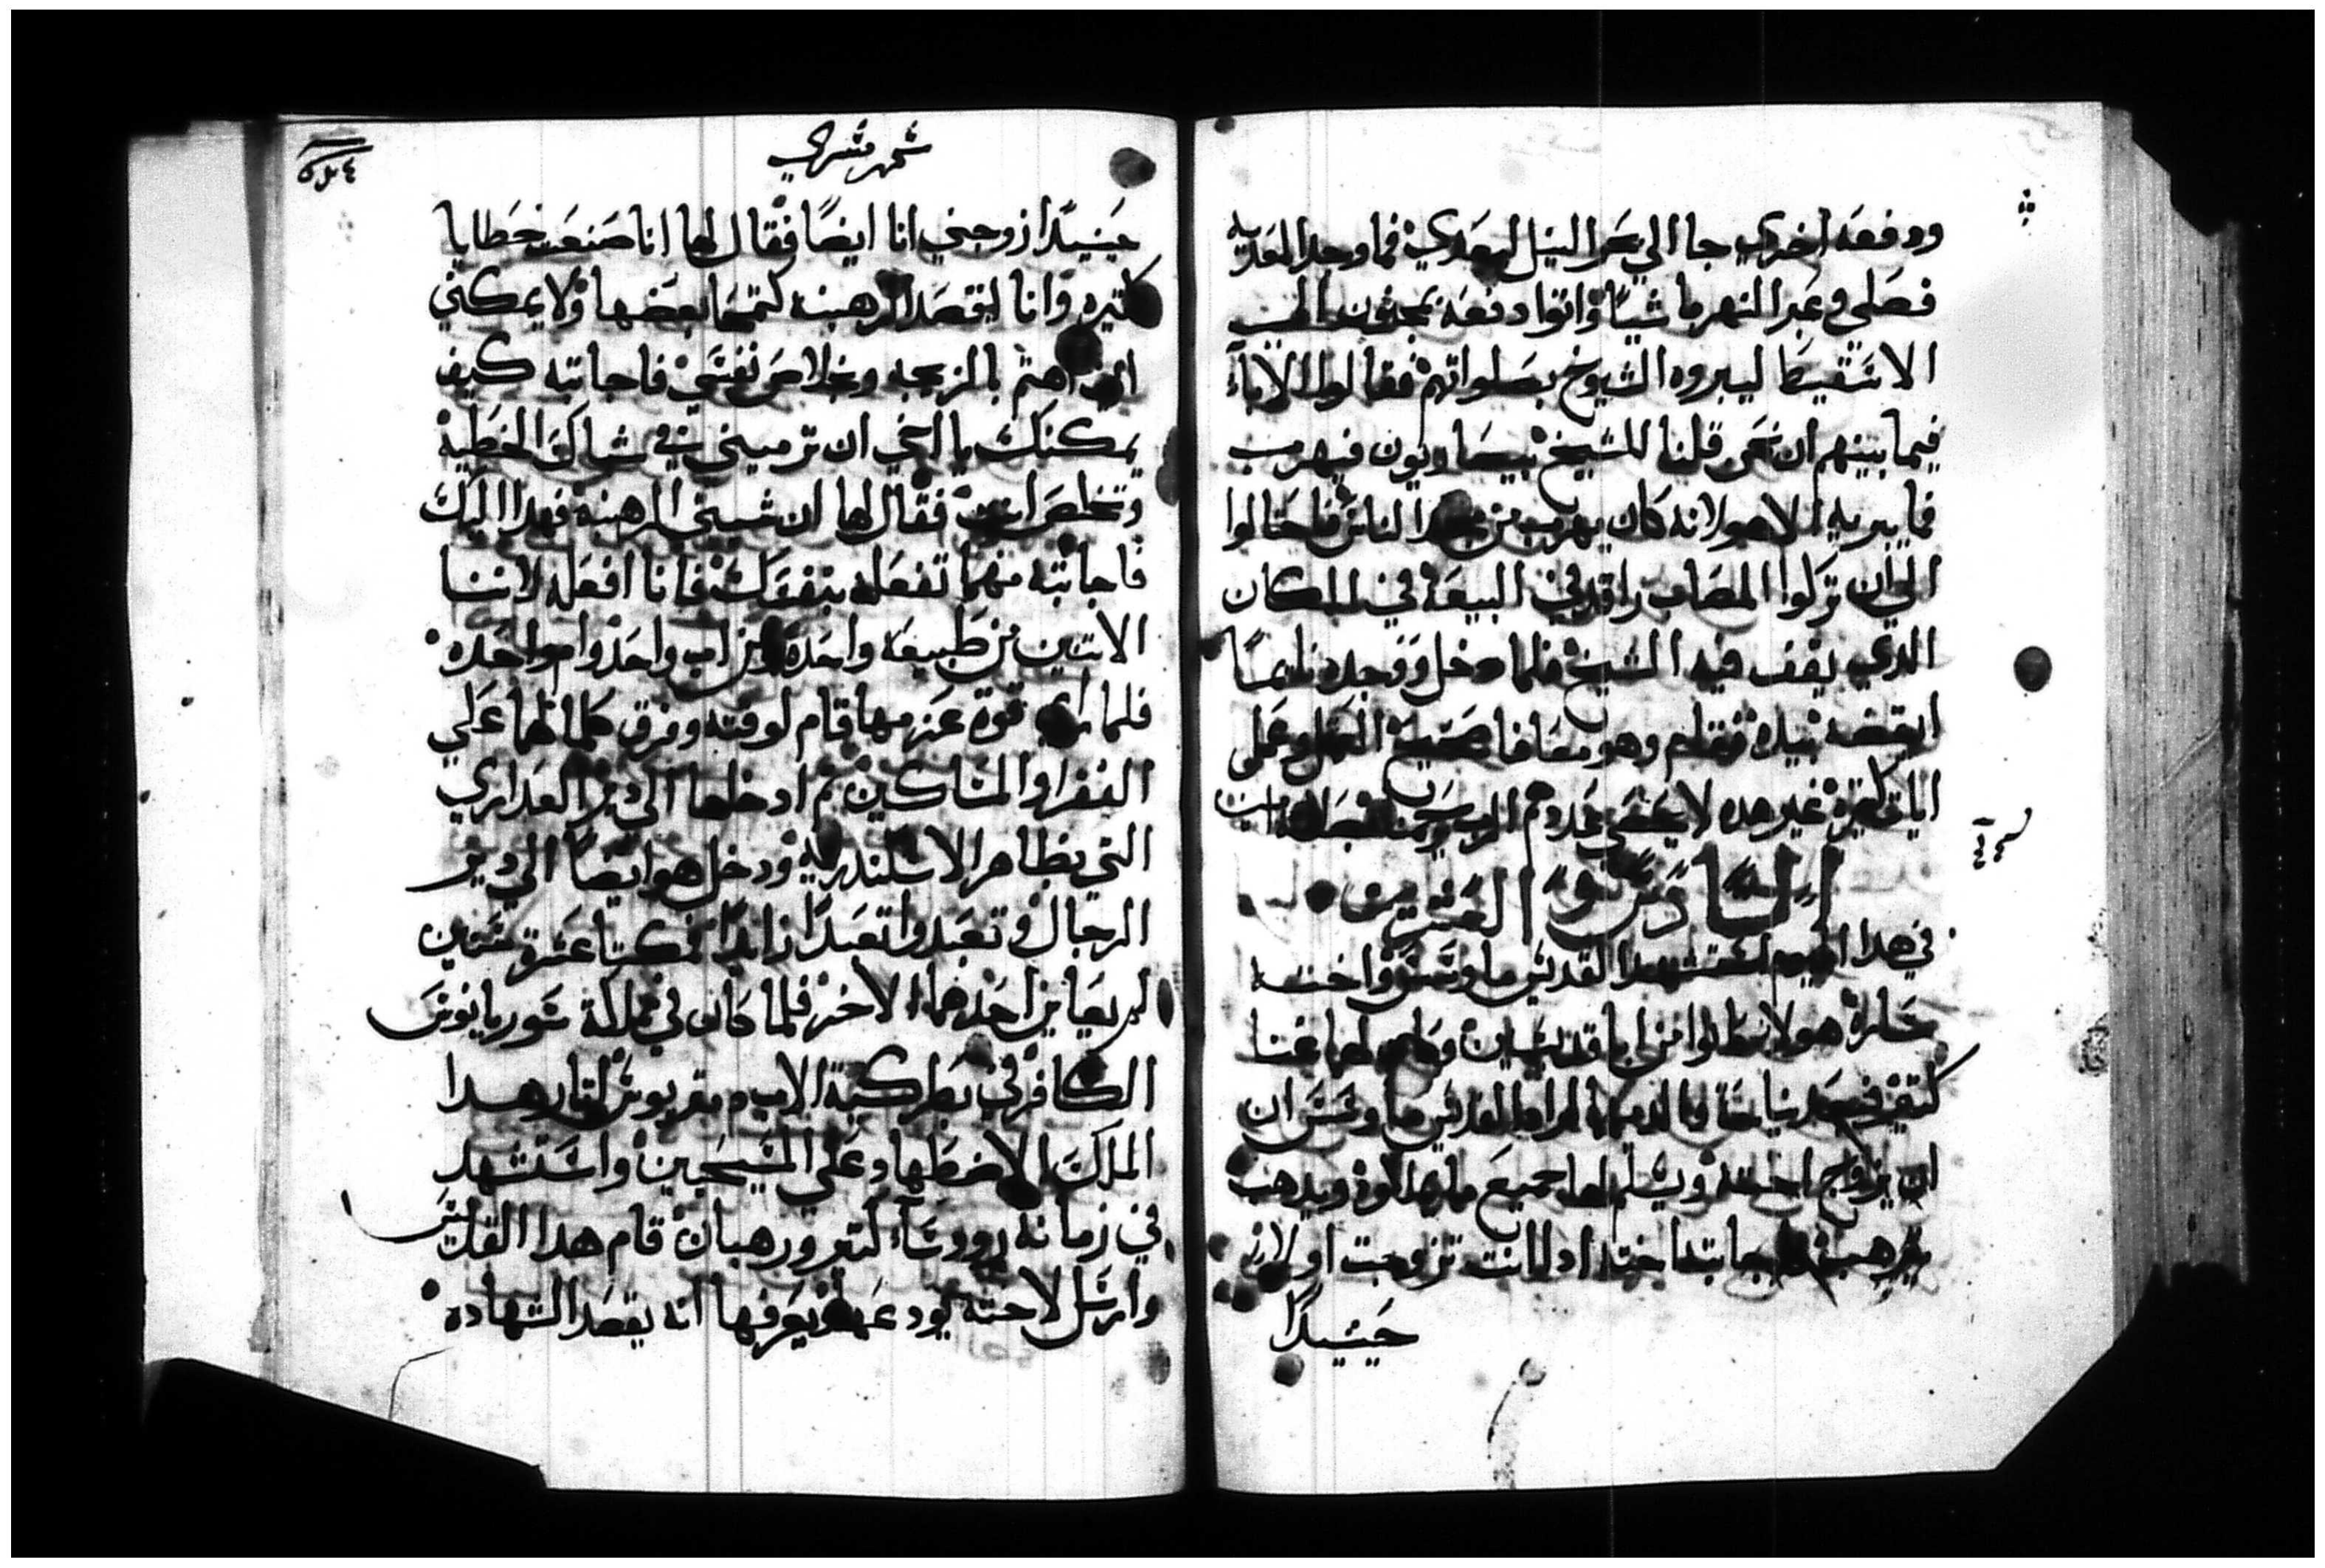 ودفعه اخري جا الي بحر النيل ليعدي فما وجد المعديه
فصلي وعبر النهر ماشياً واتوا دفعه بمجنون الي
الاسقيط ليبروه الشيوخ بصلواتهم فقالوا الاباء
فيما بينهم ان نحن قلنا للشيخ بيساريون فيهرب
فما يبريه الا هو لانه كان يهرب من مجد الناس فاحتالوا
الي ان تركوا المصاب راقد في البيعه في المكان
الذي يقف فيه الشيخ فلما دخل ووجده نايماً
ايقضه بيده فقام وهو معافا صحيح العقل وعمل
ايات كتيره غير هده لا يحصي عددهم الرب يرحمنا بصلاته امين
السادس والعشرون
في هدا اليوم استشهد القديس ماونسس واخته
ساره هولا كانوا من ابا قديسين وكان لهما غنا
كتير فبعد نياحة والديهما اراد القديس ماونسس ان
ان يزوج اخته ويسلم لها جميع ما لهما وه ويدهب
يترهب فاجابته اخته اد كانت تزوجت اولا
حينيداً
شهر مسري
حينيداً زوجني انا ايضاً فقال لها انا صنعت خطايا
كتيره وانا اقصد الرهبنه لتمحا بعضها ولا يمكني
ان اهتم بالزيجه وبخلاص نفسي فاجابته كيف
يمكنك يا اخي ان ترميني في شباك الخطية
وتخلص انت فقال لها ان شيتي الرهبنه فهدا اليك
فاجابته مهما تفعله بنفسك فانا افعله لاننا
الاتنين من طبيعه واحده ومن اب واحد وام واحده
فلما راي قوة عزمها قام لوقته وفرق كلما لهما علي
الفقرا والمساكين ثم ادخلها الي دير العداري
التي بظاهر الاسكندرية ودخل هو ايضاً الي دير
الرجال وتعبدوا تعبداً زايداً فمكتا عشرة سنين
لم يعاين احدهما الاخر فلما كان في مملكة سوريانوس
الكافر في بطركية الاب ديمتريوس اتار هدا
الملك الاضطهاد علي المسيحيين واستشهد
في زمانه روسآ كتير ورهبان قام هدا القديس
وارسل لاخته يودعها ويعرفها انه يقصد الشهاده